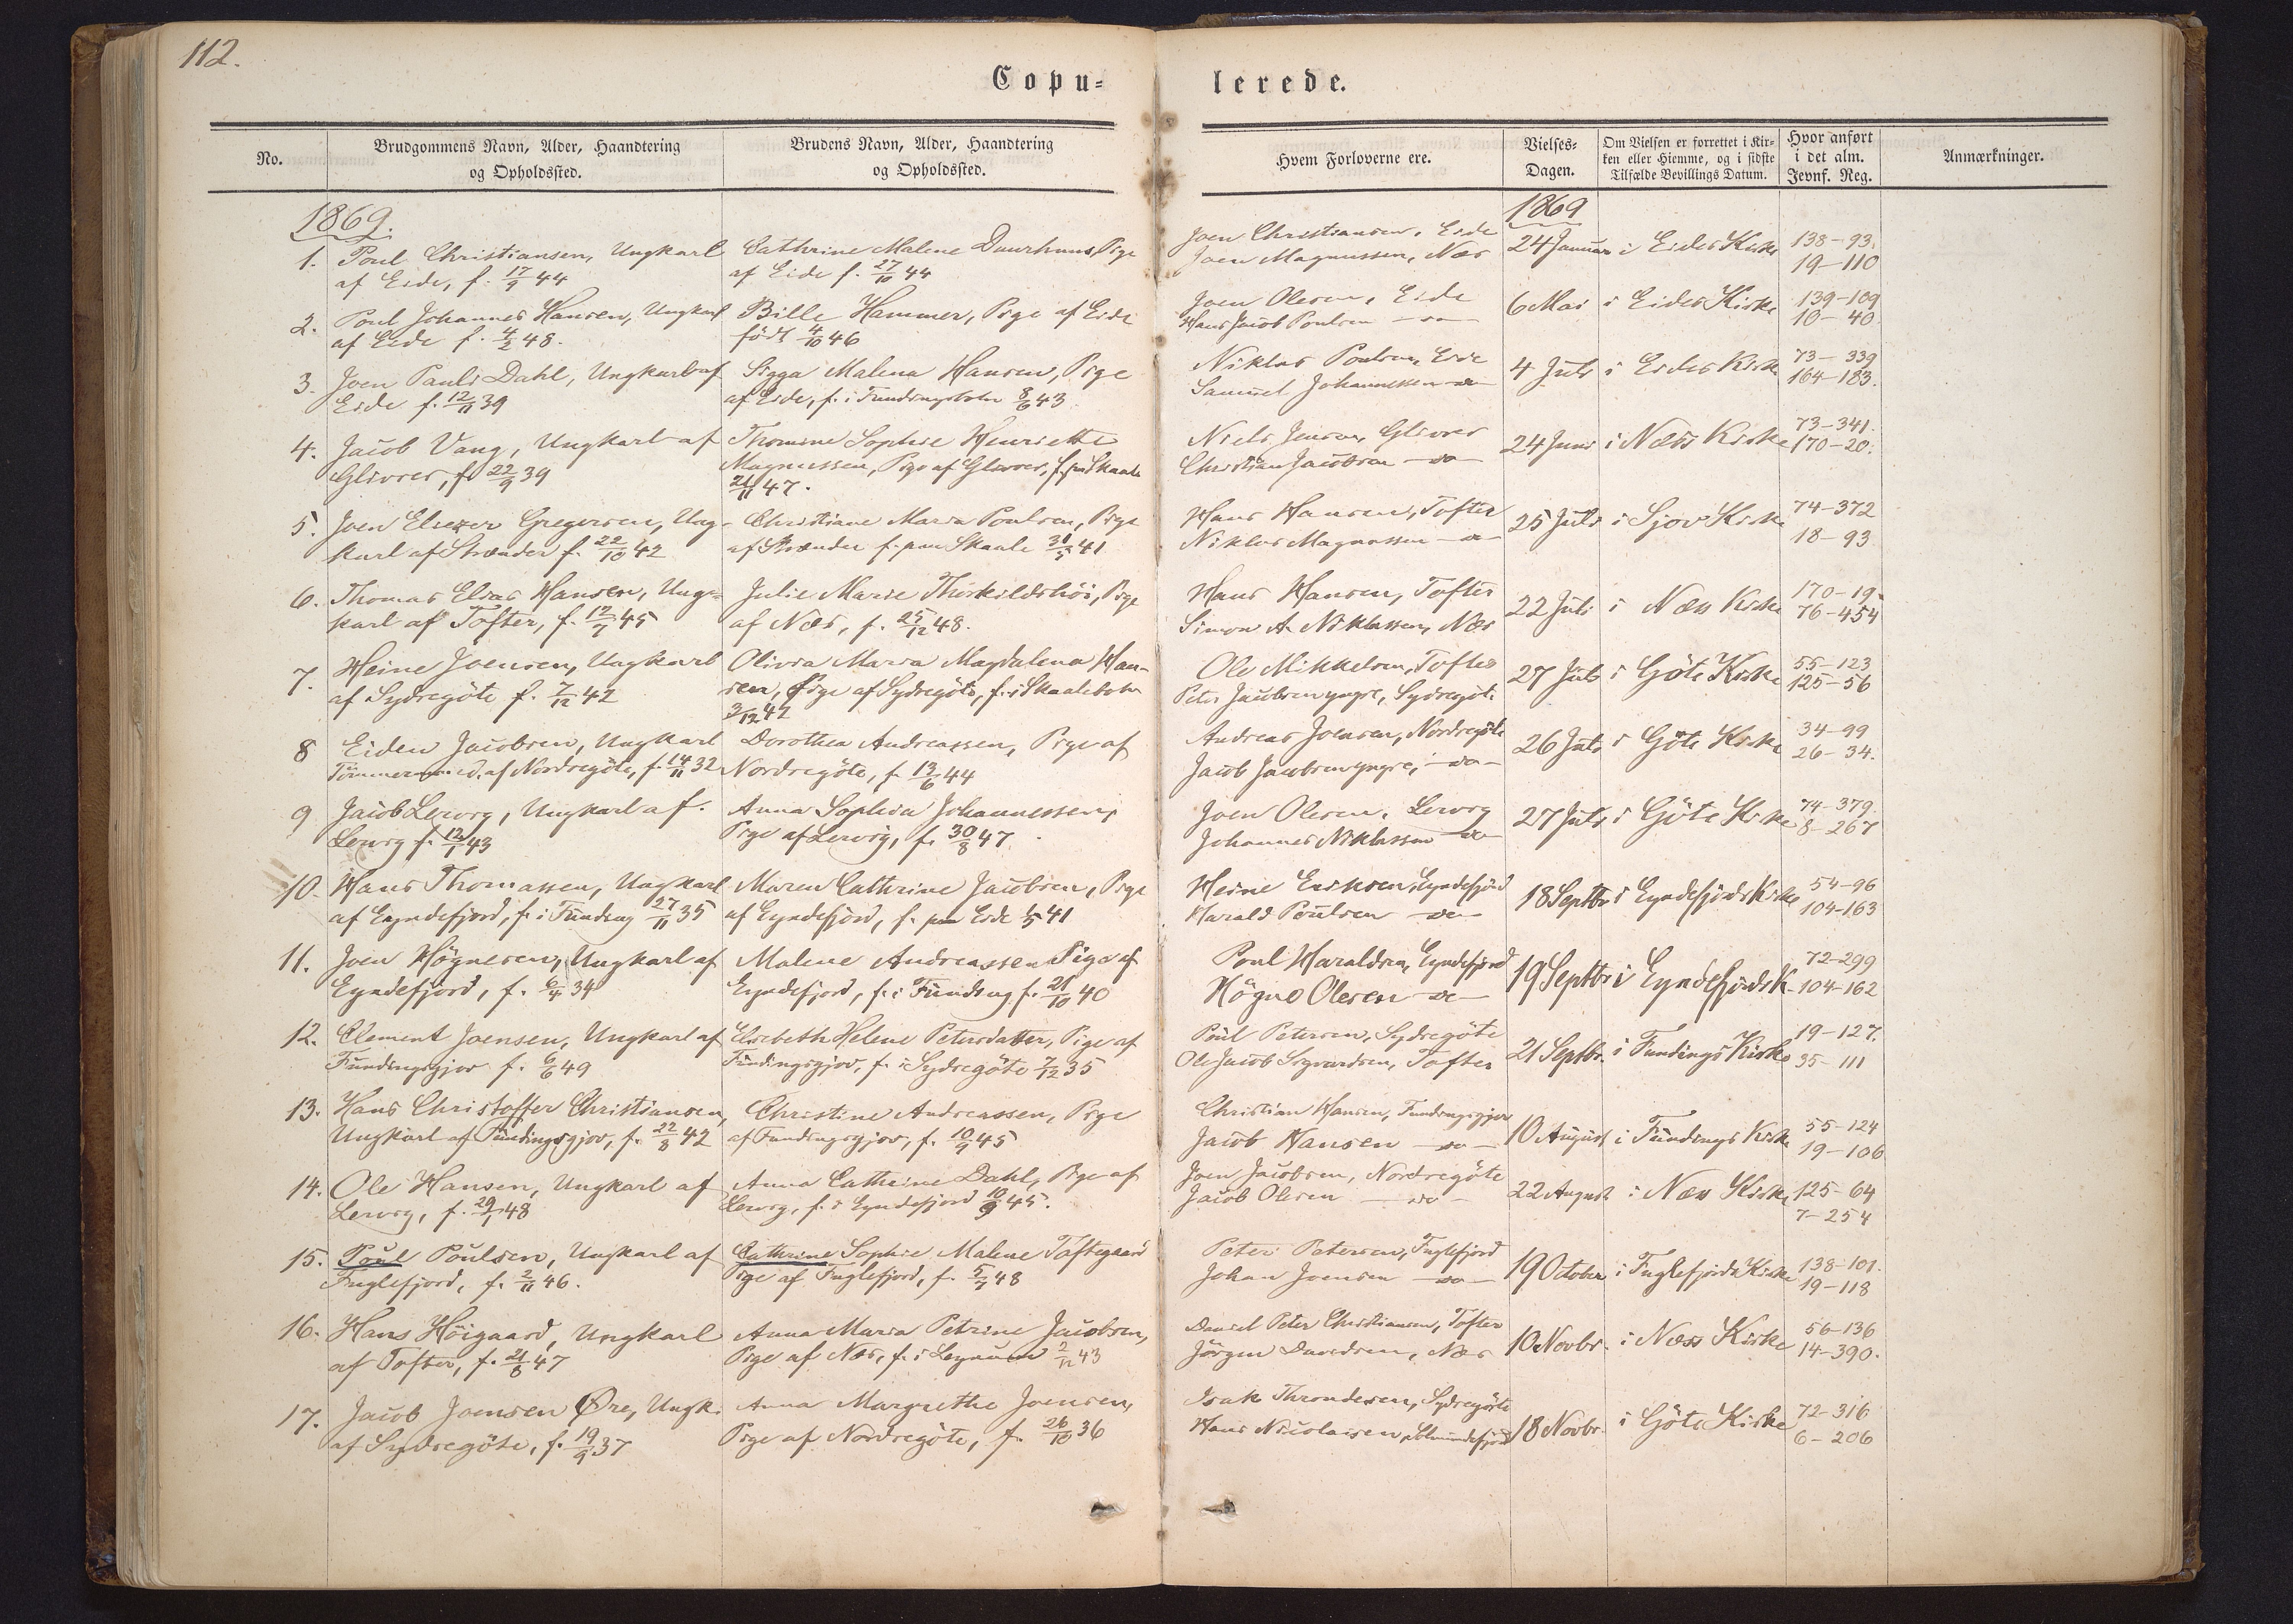 112.
Copu= lerede.
No.
Brudgommens Navn, Alder, Haandtering
og Opholdssted.
Brudens Navn, Alder, Haandtering
og Opholdssted.
Hvem Forloverne ere.
Vielses-
Dagen.
Om Vielsen er forrettet i Kir-
ken eller Hiemme, og i sidste
Tilfælde Bevillings Datum.
Hvor anført
i det alm.
Jevnf. Reg.
Anmærkninger.
1869.
1869
1. Poul Christiansen, Ungkarl
af Eide, f. 17/9 44
Cathrine Malene Duurhuus, Pige
af Eide f. 27/10 44
Joen Christiansen, Eide
Joen Magnussen, Næs
24 Januar i Eides Kirke
138-93.
19-110
2. Poul Johannes Hansen, Ungkarl
af Eide f. 4/2 48.
Bille Hammer, Pige af Eide
født 4/10 46
Joen Olesen, Eide
Hans Jacob Poulsen - do -
6 Mai i Eides Kirke
139-109
10-40.
3. Joen Pauli Dahl, Ungkarl af
Eide f. 12/11 39
Sigga Malena Hansen, Pige
af Eide, f. i Fundingsbotn 8/6 43
Niklas Poulsen, Eide
Samuel Johannessen - do -
4 Juli i Eides Kirke
73-339
164-183.
4. Jacob Vang, Ungkarl af
Glivrer, f. 22/9 39
Thomine Sophie Henriette
Magnussen, Pige af Glivrer, f. paa Skaale
21/11 47.
Niels Jensen, Glivrer
Christian Jacobsen - do -
24 Juni i Næss Kirke
73-341.
170-20.
5. Joen Eliezer Gregersen, Ung-
karl af Strænder f. 22/10 42
Christiane Maria Poulsen, Pige
af Strænder f. paa Skaale 31/5 41
Hans Hansen, Tofter
Niklas Magnussen - do -
25 Juli i Sjov Kirke
74-372
18-93
6. Thomas Elias Hansen, Ung=
karl af Tofter, f. 12/7 45
Julie Marie Thorkildshöi, Pige
af Næs, f. 25/12 48.
Hans Hansen, Tofter
Simon A. Niklassen, Næs
22 Juli i Næss Kirke
170-19.
76-454
7. Heine Joensen, Ungkarl
af Sydregöte f. 7/12 42
Olivia Maria Magdalena Han-
sen, Pige af Sydregöte, f. i Skaalebotn
3/12 42
Ole Mikkelsen, Tofter
Peter Jacobsen yngre, Sydregöte
27 Juli i Göte Kirke
55-123
125-56
8 Eiden Jacobsen, Ungkarl
Tömmermed. af Nordregöte, f. 14/11 32
Dorothea Andreassen, Pige af
Nordregöte, f. 13/6 44
Andreas Joensen, Nordregöte
Jacob Jacobsen yngre, - do -
26 Juli i Göte Kirke
34-99
26-34.
9 Jacob Lervig, Ungkarl af
Lervig f. 12/1 43
Anna Sophia Johannessen,
Pige af Lervig, f. 30/8 47.
Joen Olesen, Lervig
Johannes Niklassen - do -
27 Juli i Göte Kirke
74-379.
8-267
10. Hans Thomassen, Ungkarl
af Eyndefjord, f. i Funding 27/11 35
Maren Cathrine Jacobsen, Pige
af Eyndefjord, f. paa Eide 1/5 41
Heine Eriksen, Eyndefjord
Harald Poulsen - do -
18 Septbr i Eyndefjords Kirke
54-96
104-163
11. Joen Högnesen, Ungkarl af
Eyndefjord, f. 6/4 34
Malene Andreassen Pige af
Eyndefjord, f. i Funding f. 21/10 40
Poul Haraldsen, Eyndefjord
Högne Olesen - do -
19 Septbr i Eyndefjords K.
72-299
104-162
12. Clement Joensen, Ungkarl af
Fundingsgjov f. 6/6 49
Elsebeth Helene Petersdatter, Pige af
Fundingsgjov, f. i Sydregöte 7/12 35
Poul Petersen, Sydregöte
Ole Jacob Sigvardsen, Tofter
21 Septbr. i Fundings Kirke
19-127.
35-111
13. Hans Christoffer Christiansen,
Ungkarl af Fundingsgjov, f. 22/8 42
Christine Andreassen, Pige
af Fundingsgjov, f. 10/9 45
Christian Hansen, Fundingsgjov
Jacob Hansen - do -
10 August i Fundings Kirke
55-124
19-106
14. Ole Hansen, Ungkarl af
Lervig, f. 29/1 48
Anna Cathrine Dahl, Pige af
Lervig, f. i Eyndefjord 10/9 45.
Joen Jacobsen, Nordregöte
Jacob Olesen - do -
22 August i Næss Kirke
125-64
7-254
15. Poul Poulsen, Ungkarl af
Fuglefjord, f. 2/11 46.
Cathrine Sophie Malene Toftegaard
Pige af Fuglefjord, f. 5/7 48
Peter Petersen, Fuglefjord
Johan Joensen - do -
19 October i Fuglefjords Kirke
138-101.
19-118
16. Hans Höigaard, Ungkarl
af Tofter, f. 21/8 47
Anna Maria Petrine Jacobsen,
Pige af Næs, f. i Leynum 2/12 43
Daniel Peter Christiansen, Tofter
Jörgen Davidsen, Næs
10 Novbr. i Næss Kirke
56-136
14-390.
17. Jacob Joensen Øre, Ungk.
af Sydregöte, f. 19/9 37
Anna Margrethe Joensen,
Pige af Nordregöte, f. 26/10 36
Isak Throndesen, Sydregöte
Hans Nicolaisen, Selmundefjord
18 Novbr. i Göte Kirke
72-316
6-206